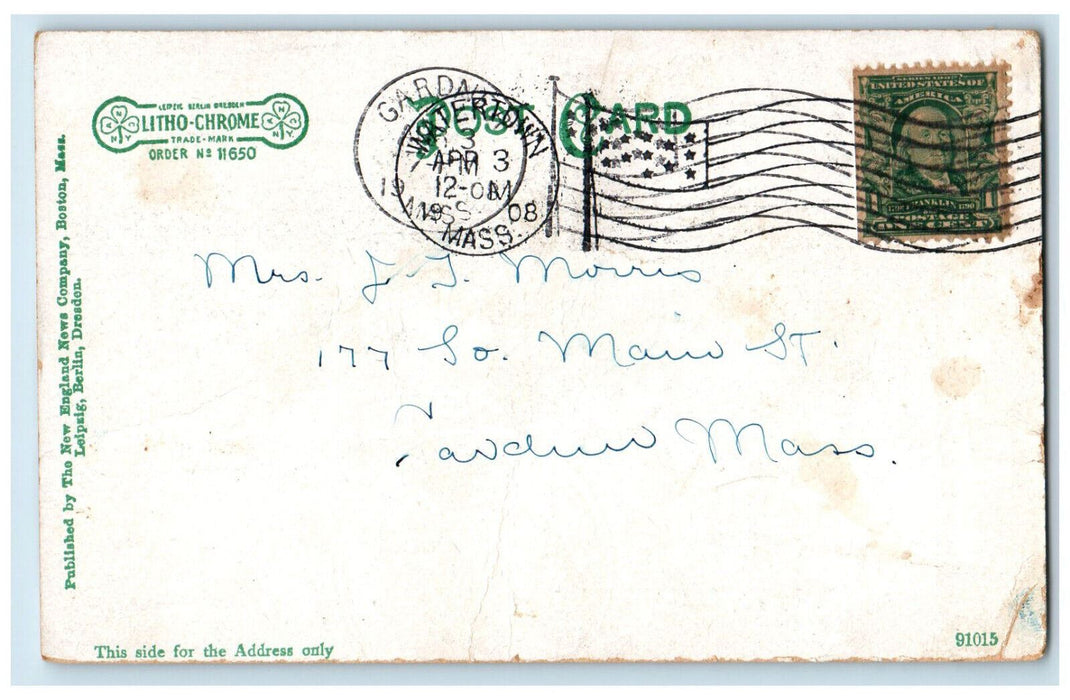 LEIPZIG BERLIN DRESDEN
LITHO-CHROME
TRADE-MARK
ORDER Nº 11650
POST CARD
GARDNER
APR
3
PM
19
MASS.
WATERTOWN
APR 3
12-M
1908
MASS.
SERIES 1902
UNITED STATES OF
AMERICA
FRANKLIN
POSTAGE
ONE CENT
Mrs. J. T. Morris
177 So. Main St.
Gardner Mass.
Published by The New England News Company, Boston, Mass.
Leipzig, Berlin, Dresden.
This side for the Address only
91015